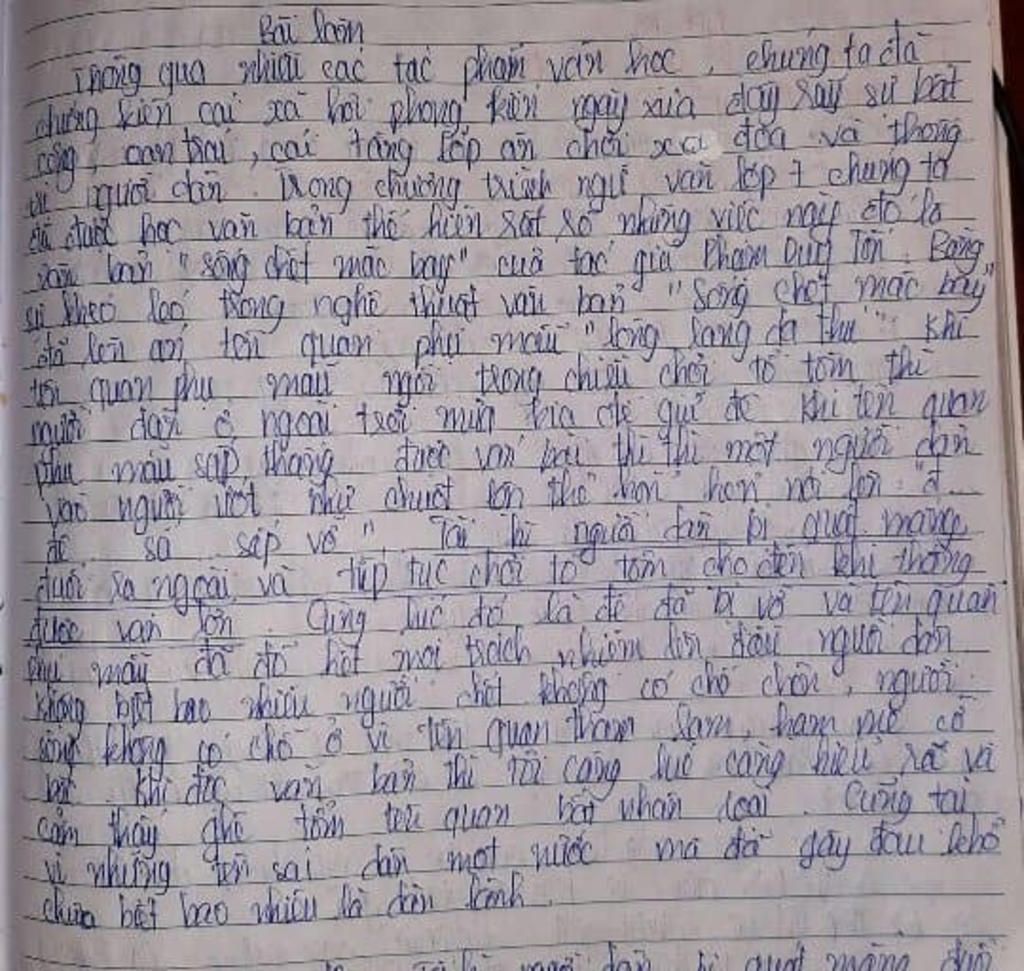 Bài làm
Thông qua nhiều các tác phẩm văn học, chúng ta đã
chứng kiến cái xã hội phong kiến ngày xưa đầy sẫy sự bất
công, oan trái, cái tầng lớp ăn chơi xa đọa và thống
trị người dân. Trong chương trình ngữ văn lớp 7 chúng ta
đã được học văn bản thể hiện rất rõ những việc này đó là
văn bản "sống chết mặc bay" của tác giả Phạm Duy Tốn. Bằng
sự khéo léo trong nghệ thuật văn bản "sống chết mặc bay"
đã lên án tên quan phụ mẫu "lòng lang dạ thú". Khi
tên quan phụ mẫu ngồi trong chơi tổ tôm thì
người dân ở ngoài trời mưa kia để giữ đê. Khi tên quan
phụ mẫu sắp thắng được ván bài thì thì một người dân
vào người ướt như chuột lột thở hổn hển nói lên "đ...
đê sa sắp vỡ". Tài bị người dân bị quát mắng
đuổi ra ngoài và tiếp tục chơi tổ tôm cho đến khi thắng
được ván lớn. Cùng lúc đó là đê đã bị vỡ và tên quan
phụ mẫu đã đổ hết mọi trách nhiệm lên đầu người dân
không biết bao nhiêu người chết không có chỗ chôn, người
sống không có chỗ ở vì tên quan tham lam, ham mê cờ
bạc. Khi đọc văn bản thì tôi càng lúc càng hiểu rõ và
cảm thấy ghê tởm tên quan bất nhân loại. Cũng tại
vì những tên sai dân một nước mà đã gây đau khổ
chưa biết bao nhiêu là dân lành.
người dân bị quát mắng đuổi